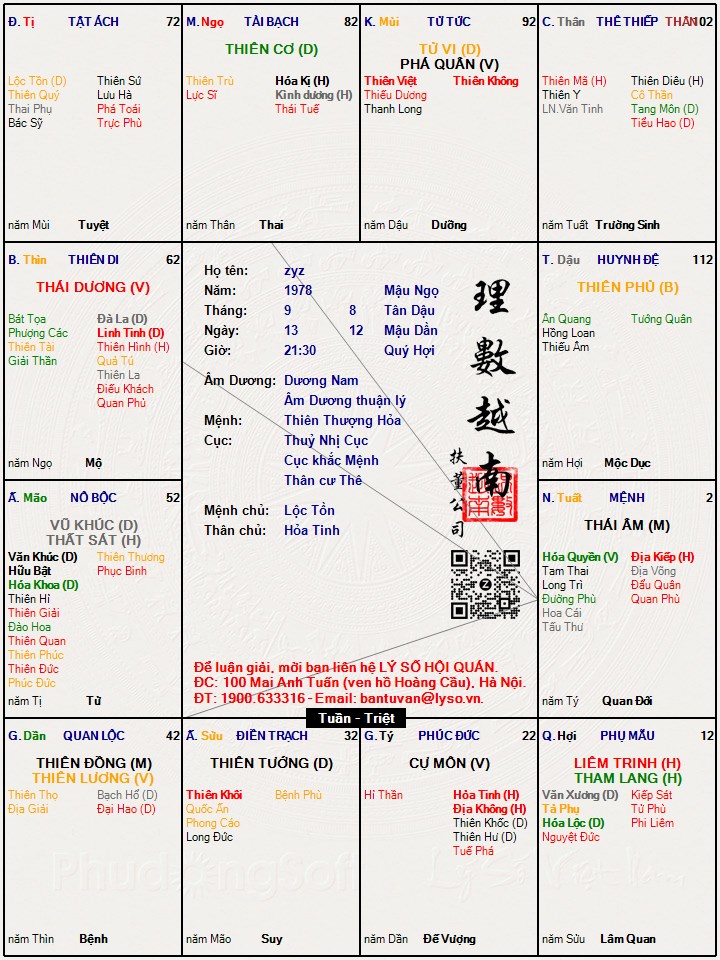 Đ. Tị TẬT ÁCH 72
Lộc Tồn (D)
Thiên Quý
Thai Phụ
Bác Sỹ
Thiên Sứ
Lưu Hà
Phá Toái
Trực Phù
năm Mùi Tuyệt
M. Ngọ TÀI BẠCH 82
THIÊN CƠ (D)
Thiên Trù
Lực Sĩ
Hóa Kị (H)
Kình dương (H)
Thái Tuế
năm Thân Thai
K. Mùi TỬ TỨC 92
TỬ VI (D)
PHÁ QUÂN (V)
Thiên Việt
Thiếu Dương
Thanh Long
Thiên Không
năm Dậu Dưỡng
C. Thân THÊ THIẾP THÂN 102
Thiên Mã (H)
Thiên Y
LN.Văn Tinh
Thiên Diêu (H)
Cô Thần
Tang Môn (D)
Tiểu Hao (D)
năm Tuất Trường Sinh
B. Thìn THIÊN DI 62
THÁI DƯƠNG (V)
Bát Tọa
Phượng Các
Thiên Tài
Giải Thần
Đà La (D)
Linh Tinh (D)
Thiên Hình (H)
Quả Tú
Thiên La
Điếu Khách
Quan Phủ
năm Ngọ Mộ
Họ tên: zyz
Năm: 1978 Mậu Ngọ
Tháng: 9 8 Tân Dậu
Ngày: 13 12 Mậu Dần
Giờ: 21:30 Quý Hợi
Âm Dương: Dương Nam
Âm Dương thuận lý
Mệnh: Thiên Thượng Hỏa
Cục: Thuỷ Nhị Cục
Cục khắc Mệnh
Thân cư Thê
Mệnh chủ: Lộc Tồn
Thân chủ: Hỏa Tinh
理數越南
扶董公司
Để luận giải, mời bạn liên hệ LÝ SỐ HỘI QUÁN.
ĐC: 100 Mai Anh Tuấn (ven hồ Hoàng Cầu), Hà Nội.
ĐT: 1900.633316 - Email: bantuvan@lyso.vn.
T. Dậu HUYNH ĐỆ 112
THIÊN PHỦ (B)
Ân Quang
Hồng Loan
Thiếu Âm
Tướng Quân
năm Hợi Mộc Dục
Ấ. Mão NÔ BỘC 52
VŨ KHÚC (D)
THẤT SÁT (H)
Văn Khúc (D)
Hữu Bật
Hóa Khoa (D)
Thiên Hỉ
Thiên Giải
Đào Hoa
Thiên Quan
Thiên Phúc
Thiên Đức
Phúc Đức
Thiên Thương
Phục Binh
năm Tị Tử
N. Tuất MỆNH 2
THÁI ÂM (M)
Hóa Quyền (V)
Tam Thai
Long Trì
Đường Phù
Hoa Cái
Tấu Thư
Địa Kiếp (H)
Địa Võng
Đẩu Quân
Quan Phù
năm Tý Quan Đới
Tuần - Triệt
G. Dần QUAN LỘC 42
THIÊN ĐỒNG (M)
THIÊN LƯƠNG (V)
Thiên Thọ
Địa Giải
Bạch Hổ (D)
Đại Hao (D)
năm Thìn Bệnh
Ấ. Sửu ĐIỀN TRẠCH 32
THIÊN TƯỚNG (D)
Thiên Khôi
Quốc Ấn
Phong Cáo
Long Đức
Bệnh Phù
năm Mão Suy
G. Tý PHÚC ĐỨC 22
CỰ MÔN (V)
Hỉ Thần
Hỏa Tinh (H)
Địa Không (H)
Thiên Khốc (D)
Thiên Hư (D)
Tuế Phá
năm Dần Đế Vượng
Q. Hợi PHỤ MẪU 12
LIÊM TRINH (H)
THAM LANG (H)
Văn Xương (D)
Tả Phụ
Hóa Lộc (D)
Nguyệt Đức
Kiếp Sát
Tử Phù
Phi Liêm
năm Sửu Lâm Quan
PhudongSoft Lý Số Việt Nam